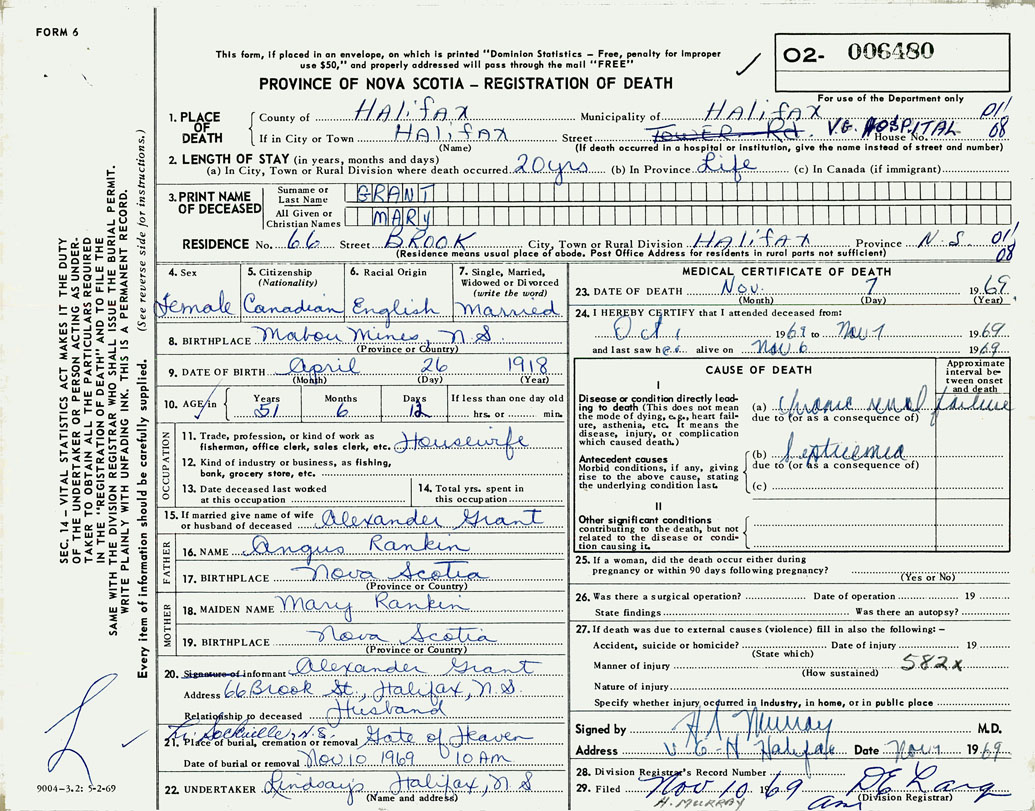 FORM 6
This form, if placed in an envelope, on which is printed "Dominion Statistics – Free, penalty for improper
use $50," and properly addressed will pass through the mail "FREE"
O2- 006480
PROVINCE OF NOVA SCOTIA – REGISTRATION OF DEATH
For use of the Department only
1. PLACE OF DEATH
County of HALifAX Municipality of HALifAX 011
If in City or Town HALifAX Street TOWER Rd. V.G. HOSPITAL House No. 08
(Name) (If death occurred in a hospital or institution, give the name instead of street and number)
2. LENGTH OF STAY (in years, months and days)
(a) In City, Town or Rural Division where death occurred 20yrs (b) In Province Life (c) In Canada (if immigrant)
3. PRINT NAME OF DECEASED
Surname or Last Name GRANT
All Given or Christian Names MARY
RESIDENCE No. 66 Street BROOK City, Town or Rural Division HALifAX Province N.S. 011
(Residence means usual place of abode. Post Office Address for residents in rural parts not sufficient) 08
4. Sex Female
5. Citizenship (Nationality) Canadian
6. Racial Origin English
7. Single, Married, Widowed or Divorced (write the word) Married
8. BIRTHPLACE Mabou Mines, N.S.
(Province or Country)
9. DATE OF BIRTH April 26 1918
(Month) (Day) (Year)
10. AGE in Years 51 Months 6 Days 12 If less than one day old
hrs. or min.
OCCUPATION
11. Trade, profession, or kind of work as
fisherman, office clerk, sales clerk, etc. Housewife
12. Kind of industry or business, as fishing,
bank, grocery store, etc.
13. Date deceased last worked
at this occupation
14. Total yrs. spent in
this occupation
15. If married give name of wife
or husband of deceased Alexander Grant
FATHER
16. NAME Angus Rankin
17. BIRTHPLACE Nova Scotia
(Province or Country)
MOTHER
18. MAIDEN NAME Mary Rankin
19. BIRTHPLACE Nova Scotia
(Province or Country)
20. Signature of informant Alexander Grant
Address 66 Brook St., Halifax, N.S.
Relationship to deceased Husband
Sackville, N.S.
21. Place of burial, cremation or removal Gate of Heaven
Date of burial or removal Nov 10 1969 10 Am
22. UNDERTAKER Lindsay's Halifax, N.S
(Name and address)
MEDICAL CERTIFICATE OF DEATH
23. DATE OF DEATH Nov. 7 1969.
(Month) (Day) (Year)
24. I HEREBY CERTIFY that I attended deceased from:
Oct 1 1969 to Nov 7 1969
and last saw her alive on Nov 6 1969.
CAUSE OF DEATH
Approximate interval between onset and death
I
Disease or condition directly leading to death (This does not
the mode of dying, e.g., heart failure, asthenia, etc. It means the
disease, injury, or complication
which caused death.)
(a) Chronic renal failure
due to (or as a consequence of)
Antecedent causes
Morbid conditions, if any, giving
rise to the above cause, stating
the underlying condition last.
(b) Septicemia
due to (or as a consequence of)
(c)
II
Other significant conditions
contributing to the death, but not
related to the disease or condition
causing it.
25. If a woman, did the death occur either during
pregnancy or within 90 days following pregnancy?
(Yes or No)
26. Was there a surgical operation? Date of operation 19
State findings Was there an autopsy?
27. If death was due to external causes (violence) fill in also the following: –
Accident, suicide or homicide? Date of injury 19
(State which)
Manner of injury 582x
(How sustained)
Nature of injury
Specify whether injury occurred in industry, in home, or in public place
Signed by Murray M.D.
Address V G H Halifax Date Nov 7 1969
28. Division Registrar's Record Number
29. Filed Nov 10 1969
H. MURRAY
(Division Registrar)
SEC. 14 – VITAL STATISTICS ACT MAKES IT THE DUTY
OF THE UNDERTAKER OR PERSON ACTING AS UNDER-
TAKER TO OBTAIN ALL THE PARTICULARS REQUIRED
IN THE "REGISTRATION OF DEATH" AND TO FILE THE
SAME WITH THE DIVISION REGISTRAR WHO SHALL ISSUE THE BURIAL PERMIT.
WRITE PLAINLY WITH UNFADING INK. THIS IS A PERMANENT RECORD.
Every item of information should be carefully supplied. (See reverse side for instructions.)
9004–3.2: 5-2-69